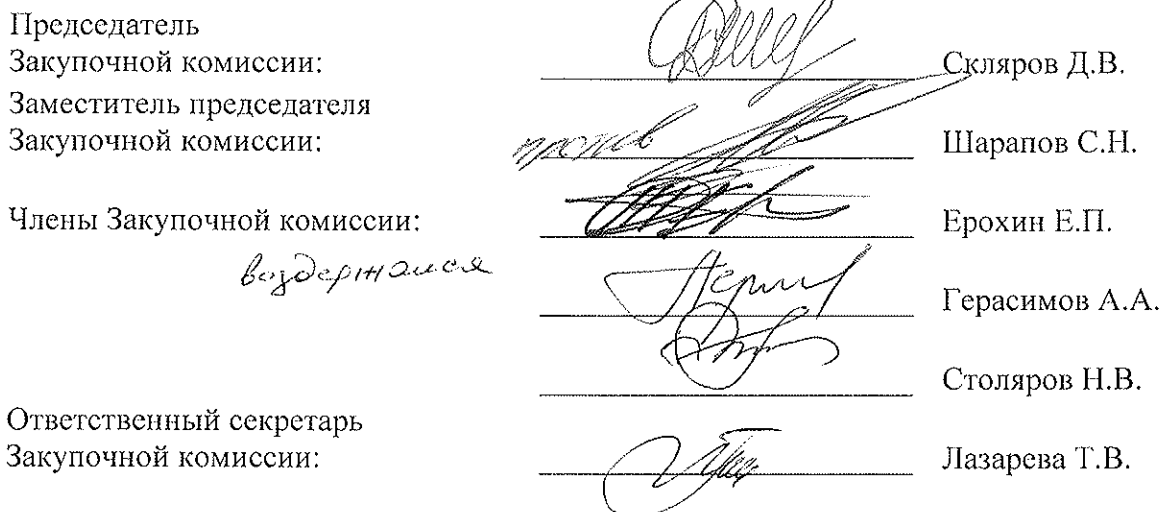 Председатель
Закупочной комиссии: Скляров Д.В.
Заместитель председателя
Закупочной комиссии: против Шарапов С.Н.
Члены Закупочной комиссии: Ерохин Е.П.
воздержался Герасимов А.А.
Столяров Н.В.
Ответственный секретарь
Закупочной комиссии: Лазарева Т.В.